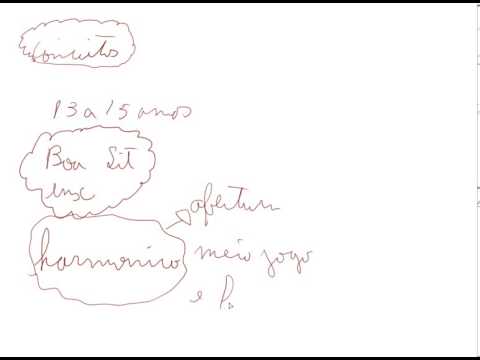 Conceitos
13 a 15 anos
Boa Sit
abertura
harmonico meio jogo
e P.